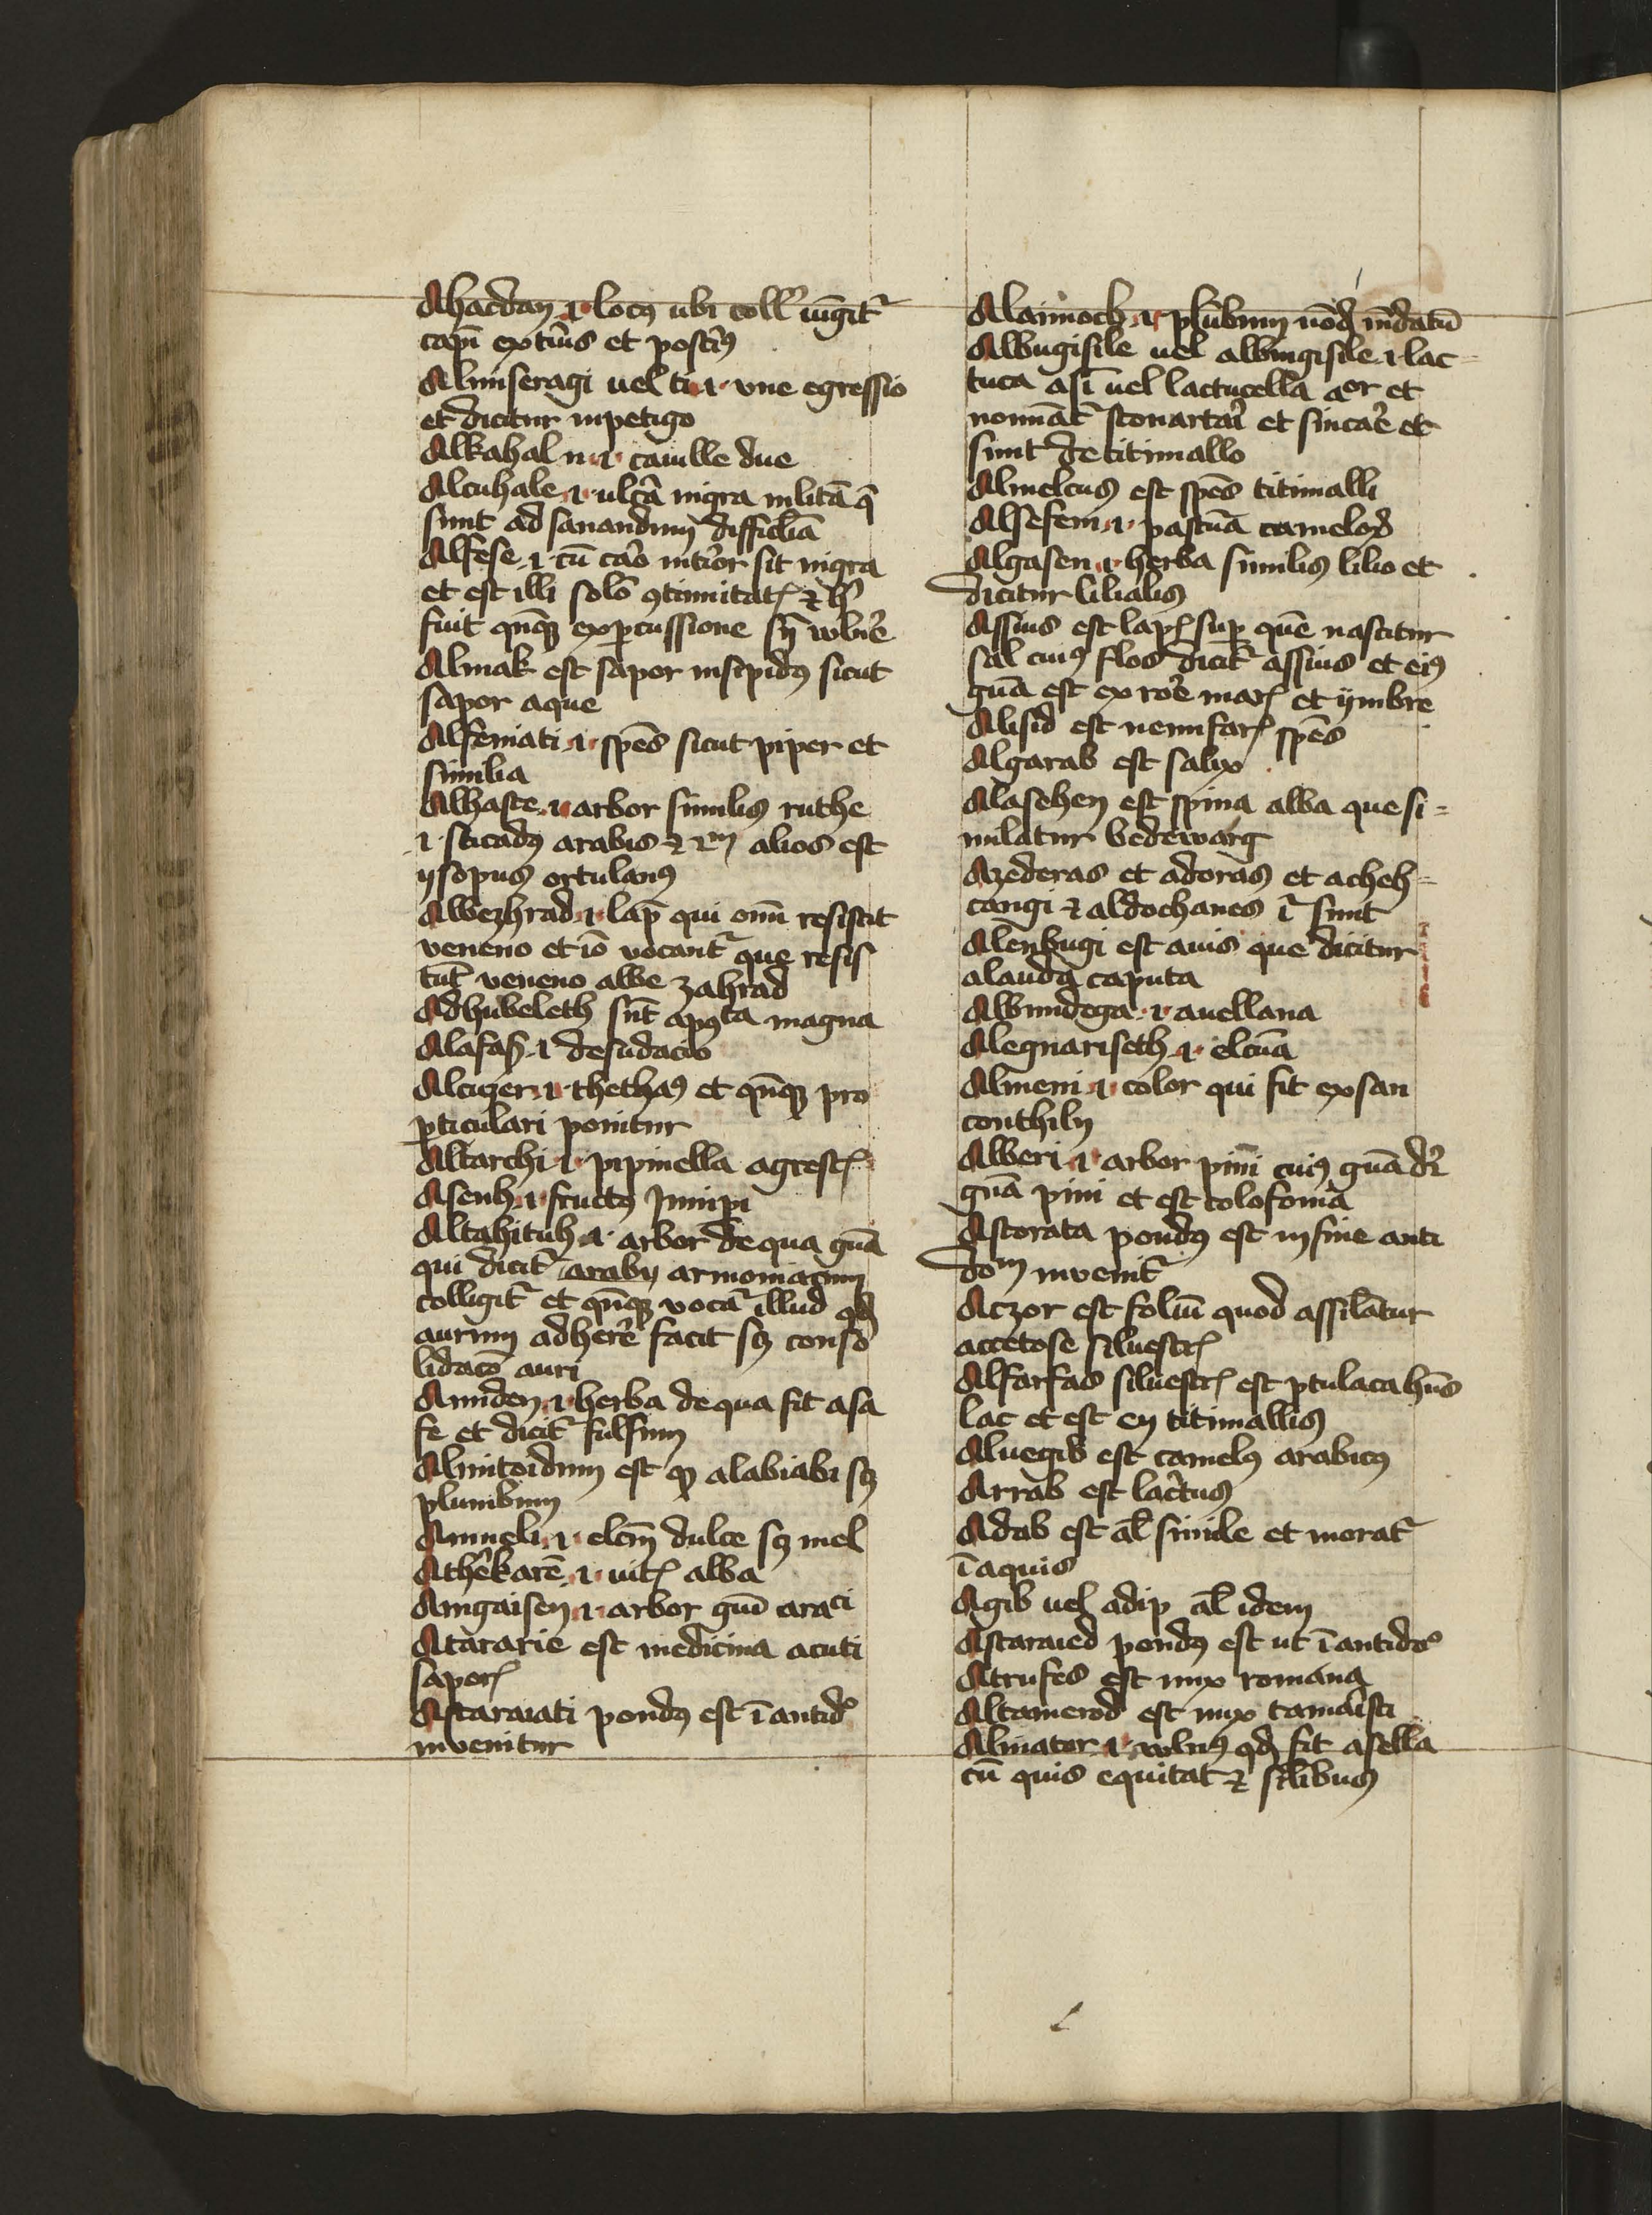 Ahacdan .i. locus ubi coll' iūgit᷑
capi exti͛us et posti͛us
Almseragi uel ti .i. vne egressio
et dicitur inpetigo
Alkahal n .i. cauille due
Alcuhale .i. ulc͛a nigra militā q̄
sunt ad sanandum difficilia
Alfese .i. cū caro int͛ior sit nigra
et est illi solo ꝯtinuitatꝭ ⁊ h͛
fuit qn̄qꝫ expercussione sn̄ vuln͛e
Almak est sapor insipidus sicut
sapor aque
Alfemati .i. spēs sicut piper et
similia
Alhaste .i. arbor similis ruthe
.i. sticadus arabis ⁊ 2m alios est
ysopus ortulanus
Albezhrad .i. lap̄ qui omī resistit
veneno et iō vocant᷑ que resis
tūt veneno albe zahrad
Adhubeleth sūt apꝯta magna
Alafaf .i. desudacio
Alcuzer .i. thethas et qn̄qꝫ pro
ꝑticulari ponitur
Altarchi .i. pipinella agrestꝭ
Asenh .i. fructus Junipi
Altahituh .i. arbor de qua gūa
qui dicit᷑ arabi armoniacum
colligit᷑ et qn̄qꝫ vocat᷑ illud qd
aurum adher͛e facit sꝫ conso
lidacō auri
Amiden .i. herba de qua fit asa
fe et dicit᷑ fulsim
Almitoidum est ꝙ alabiabi sꝫ
plumbum
Amneli .i. elcm̄ dulce sꝫ mel
Ath͛ekarē .i. uitꝭ alba
Amgaisen .i. arbor gūi araci
Atararie est medicina acuti
saporꝭ
Astaraiati pondus est ī antido
invenitur
Alaimoch .i. plūbum nōd mūdatū
Albugisile uel albingisile .i. lac=
tuca asī uel lactucella aor et
nomīat᷑ et sincar͛e et
sunt de titimallo
Almelcus est spēs titimalli
Alsefem .i. pascua cameloꝝ
Algasen .i. herba similis lilio et
dicitur lilialis
Assius est lapꝭ sup quē nascitur
sal cuius flos dicit᷑ assius et eius
gūa est ex ror͛e marꝭ et ymbre
Alisid est nenufarꝭ spēs
Algarab est salix
Alasehen est spina alba que si=
milatur bedewarg
Azederas et adoras et acheh=
cangi ⁊ aldochanes ī sunt
Alenbugi est auis que dicitur
alauda caputa
Albundega .i. auellana
Alegnariseth .i. elcūa
Almeni .i. color qui fit ex san
conthily
Alberi .i. arbor pini cuius gūa dr̄
gūa pini et est colofonia
Astorata pondus est in fine anti
dom invenit᷑
Aczor est foliū quod assilatur
accetose siluestꝭ
Alfarfas siluestꝭ est ꝑtulaca hn̄s
lac et est ex titimallis
Aluegib est camelus arabicus
Arrab est lac͛tus
Adab est al̄ simile et morat᷑
ī aquis
Agib uel adip al̄ idem
Astaraied pondus est ut ī antido
Atrufes est nux romana
Altamerod est nux tamaristi
Almator .i. vulnus qd fit a sella
cū quis equitat ⁊ silibus